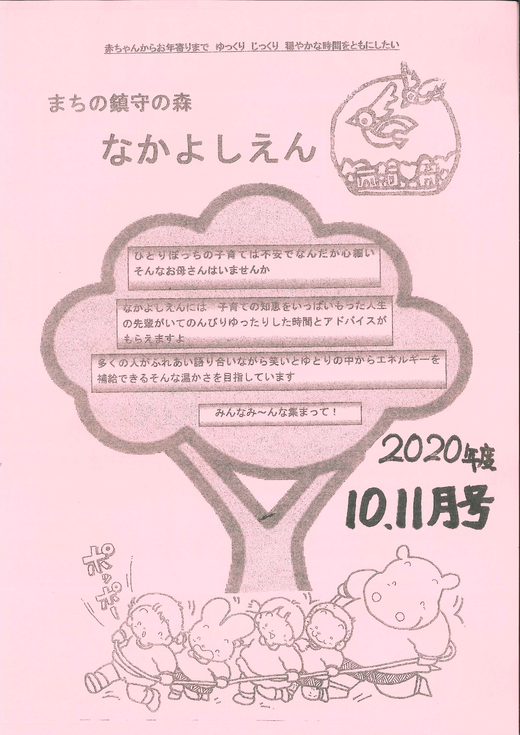 赤ちゃんからお年寄りまで ゆっくり じっくり 穏やかな時間をともにしたい
まちの鎮守の森
なかよしえん
ひとりぼっちの子育ては不安でなんだか心細い
そんなお母さんはいませんか
なかよしえんには 子育ての知恵をいっぱいもった人生
の先輩がいてのんびりゆったりした時間とアドバイスが
もらえますよ
多くの人がふれあい語り合いながら笑いとゆとりの中からエネルギーを
補給できるそんな温かさを目指しています
みんなみ～んな集まって！
2020年度
10.11月号
ポッポー